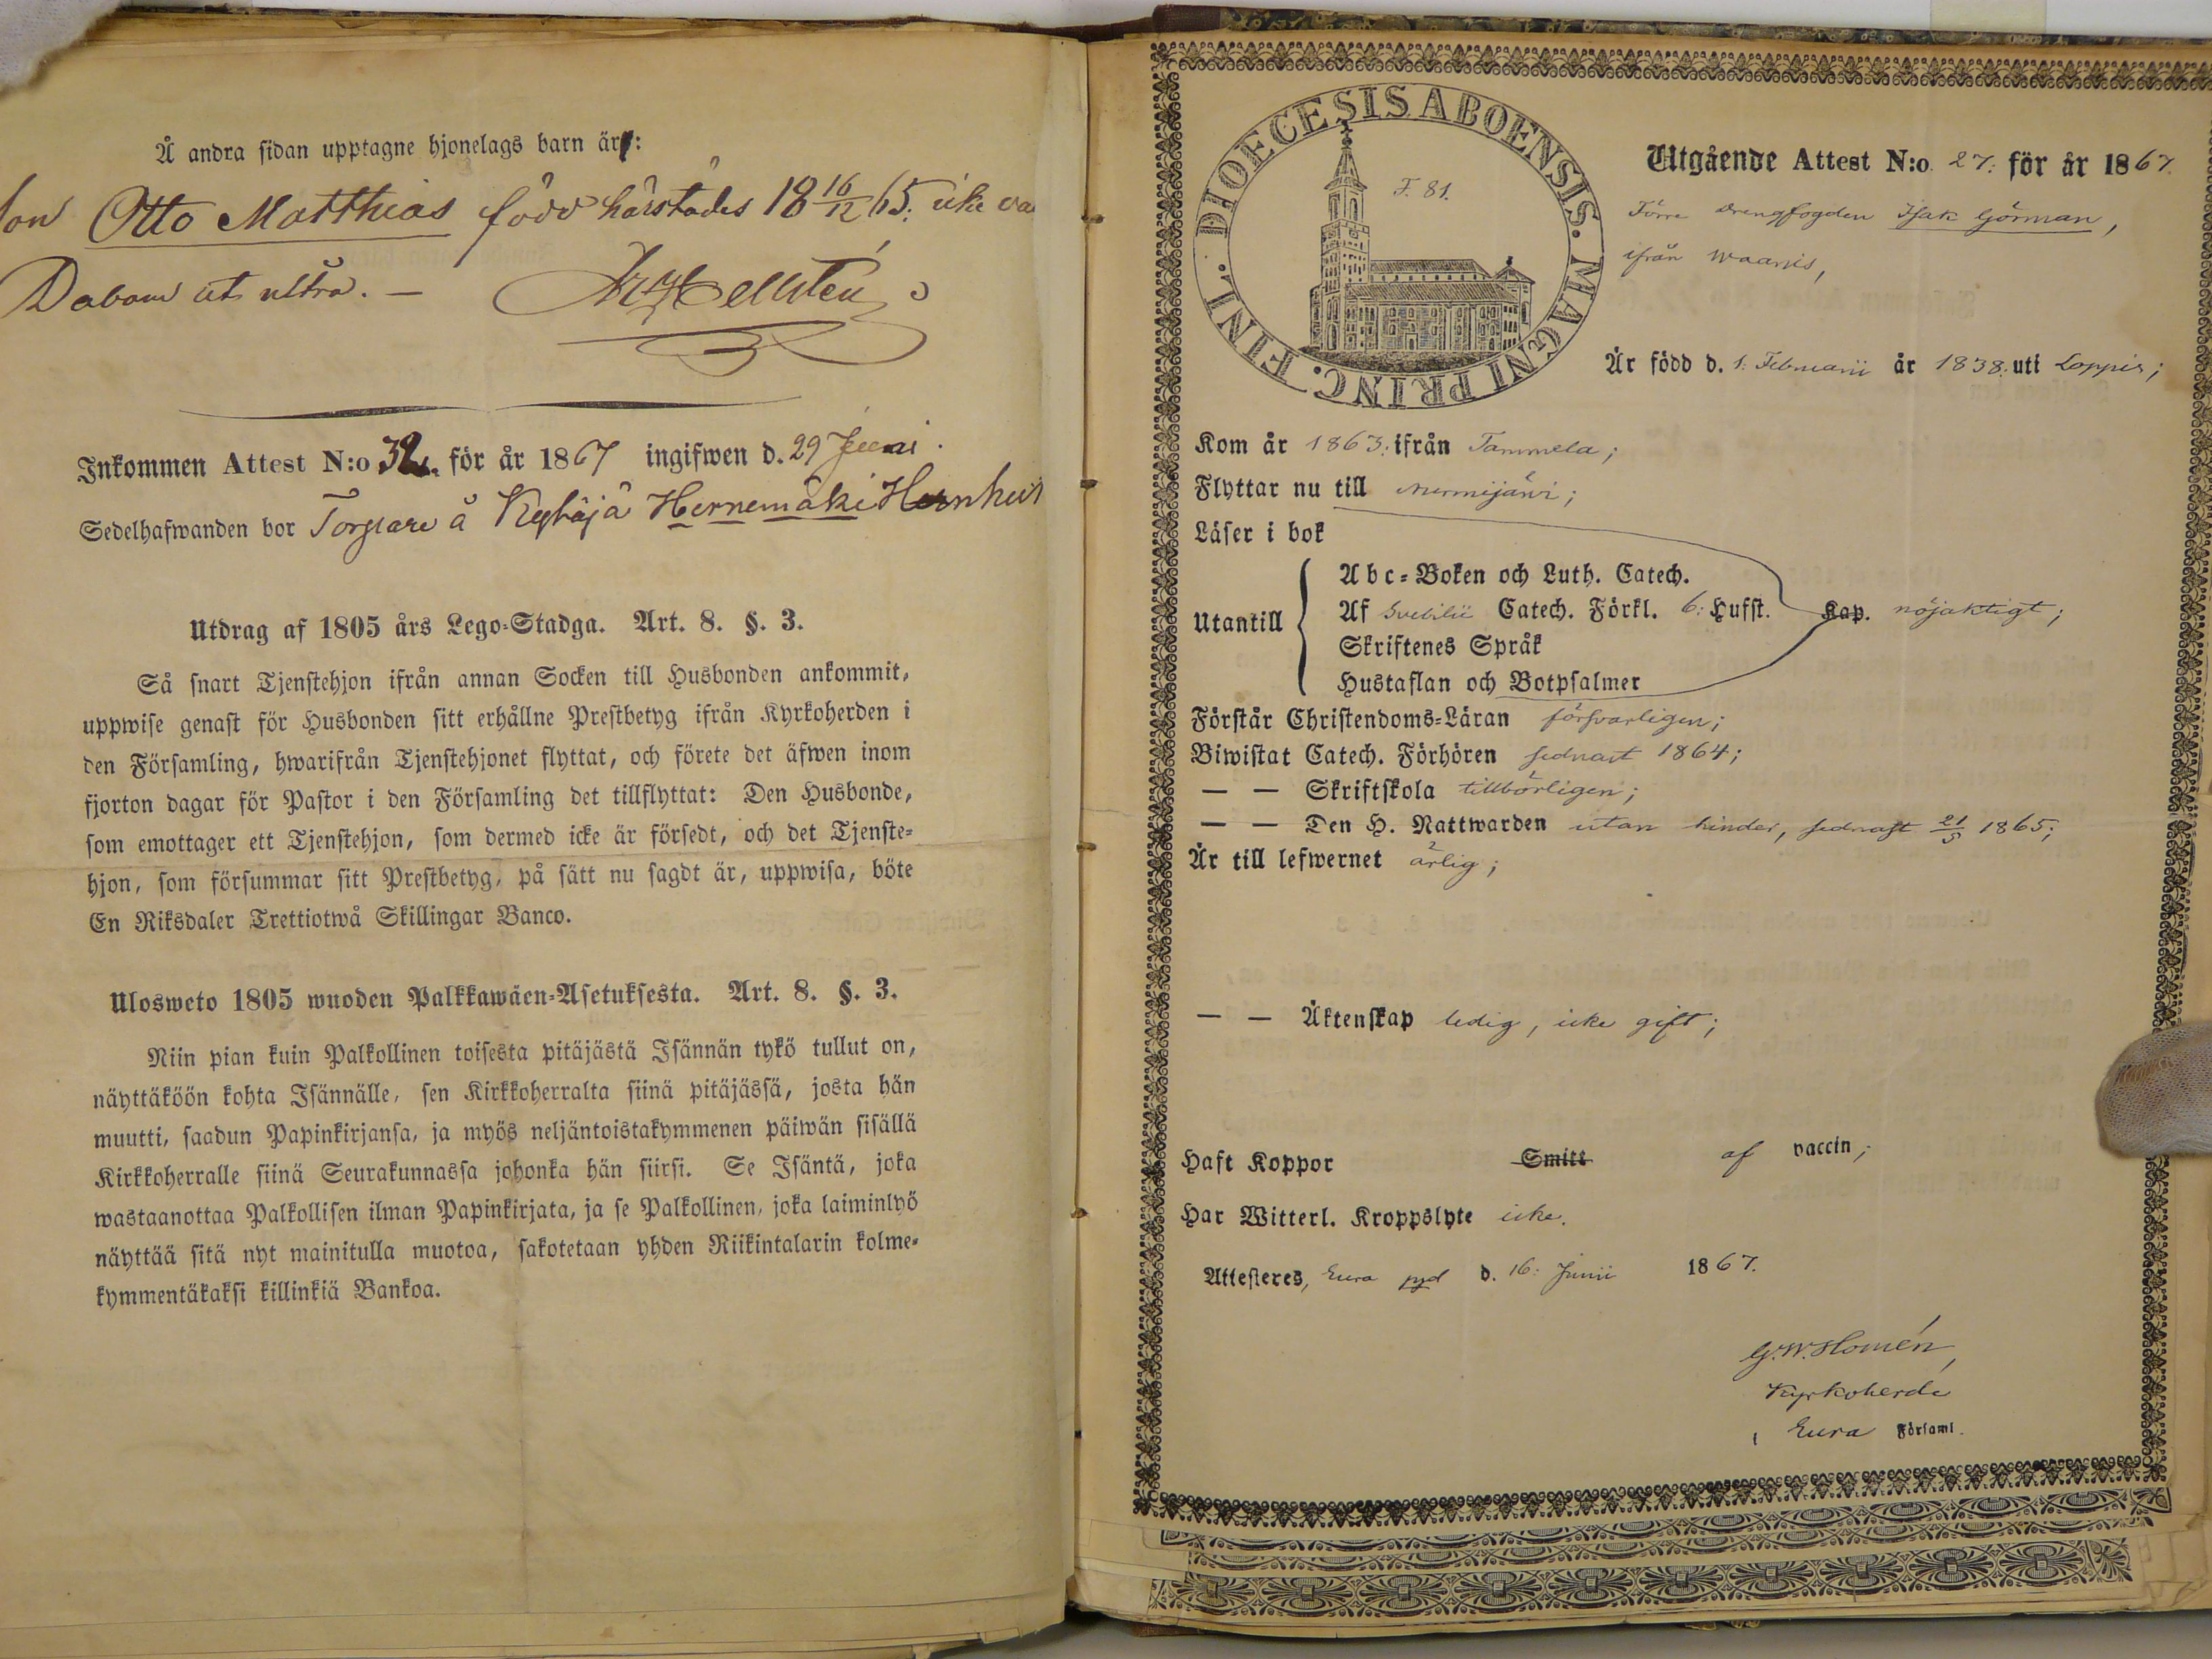 Å andra sidan upptagne hjonelags barn är:
son Otto Matthias född härstädes 18 16/12 65. icke va
Datum ut ultra. —
Inkommen Attest N:o 32. för år 1867 ingifwen d. 29 Juni.
Sedelhafwanden bor Torpare å Kytäjä Hernemäki
Utdrag af 1805 års Lego-Stadga. Art. 8. §. 3.
Så snart Tjenstehjon ifrån annan Socken till Husbonden ankommit,
uppwise genast för Husbonden sitt erhållne Prestbetyg ifrån Kyrkoherden i
den Församling, hwarifrån Tjenstehjonet flyttat, och förete det äfwen inom
fjorton dagar för Pastor i den Församling det tillflyttat: Den Husbonde,
som emottager ett Tjenstehjon, som dermed icke är försedt, och det Tjenste-
hjon, som försummar sitt Prestbetyg, på sätt nu sagdt är, uppwisa, böte
En Riksdaler Trettiotwå Skillingar Banco.
Ulosweto 1805 wuoden Palkkawäen-Asetuksesta. Art. 8. §. 3.
Niin pian kuin Palkollinen toisesta pitäjästä Isännän tykö tullut on,
näyttäköön kohta Isännälle, sen Kirkkoherralta siinä pitäjässä, josta hän
muutti, saadun Papinkirjansa, ja myös neljäntoistakymmenen päiwän sisällä
Kirkkoherralle siinä Seurakunnassa johonka hän siirsi. Se Isäntä, joka
wastaanottaa Palkollisen ilman Papinkirjata, ja se Palkollinen, joka laiminlyö
näyttää sitä nyt mainitulla muotoa, sakotetaan yhden Riikintalarin kolme-
kymmentäkaksi killinkiä Bankoa.
DIOECESIS ABOENSIS. MAGNI PRINC. FINL.
F. 81.
Utgående Attest N:o 27. för år 1867.
Förre Drengfogden Isak Görman,
ifrån Waanis,
Är född d. 1. Februarii år 1838. uti Loppis;
Kom år 1863. ifrån Tammela;
Flyttar nu till Nurmijärvi;
Läser i bok
Utantill
Abc-Boken och Luth. Catech.
Af Svebilii Catech. Förkl. 6: Hufst. Kap. nöjaktigt;
Skriftenes Språk
Hustaflan och Botpsalmer
Förstår Christendoms-Läran försvarligen;
Biwistat Catech. Förhören sednast 1864;
— — Skriftskola tillbörligen;
— — Den H. Nattwarden utan hinder, sednast 21/5 1865;
Är till lefwernet ärlig;
— — Äktenskap ledig, icke gift;
Haft Koppor Smitt af vaccin;
Har Witterl. Kroppslyte icke.
Attesteres, Eura pgd d. 16: Junii 1867.
G. W. Homén,
Kyrkoherde
i Eura Församl.